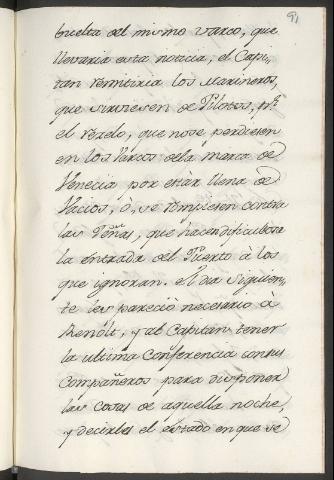 91
buelta del mismo varco, que
llevaria esta noticia, el Capi,
tan remitiria los Marineros,
que sirviesen de Pilotos, pr.
el rezelo, que no se perdiesen
en los Varcos dela marca de
Venecia por estàr llena de
Vacios, ò, se rompiesen contra
las Peñas, que hacen dificultosa
la entrada del Puerto à los
que ignoran. el dia siguien,
te les pareciò necesario à
Renòlt, y al Capitan tener
la ultima Conferencia con sus
Compañeros para disponer
las cosas de aquella noche,
y decirles el estado en que se